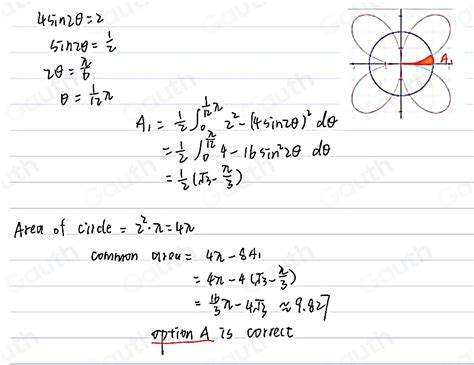 4sin2θ=2
sin2θ=1/2
2θ=π/6
θ=1/12π
A₁
A₁ = 1/2 ∫₀^(1/12π) 2²-(4sin2θ)² dθ
= 1/2 ∫₀^(π/12) 4-16sin²2θ dθ
= 1/2(√3-π/3)
Area of circle = 2²·π=4π
common area= 4π-8A₁
= 4π-4(√3-π/3)
= 16/3π-4√3 ≈9.827
option A is correct
Gauth